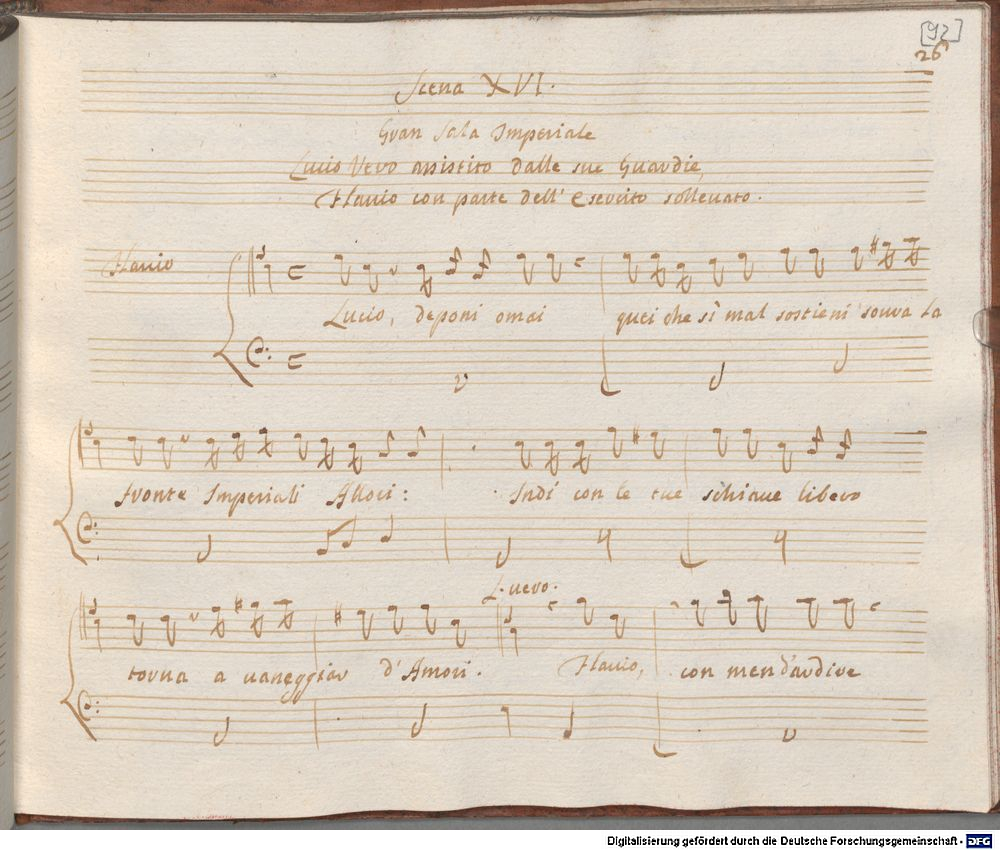 [92]
26
Scena XVI.
Gran Sala Imperiale
Lucio Vero assistito dalle sue Guardie,
Flavio con parte dell' Esercito sollevato.
Flavio
Lucio, deponi omai quei che sì mal sostieni sovra la
fronte Imperiali Allori: Indi con le tue schiave libero
torna a vaneggiar d'Amori. Flavio, con men d'ardire
L. vero.
Digitalisierung gefördert durch die Deutsche Forschungsgemeinschaft - DFG